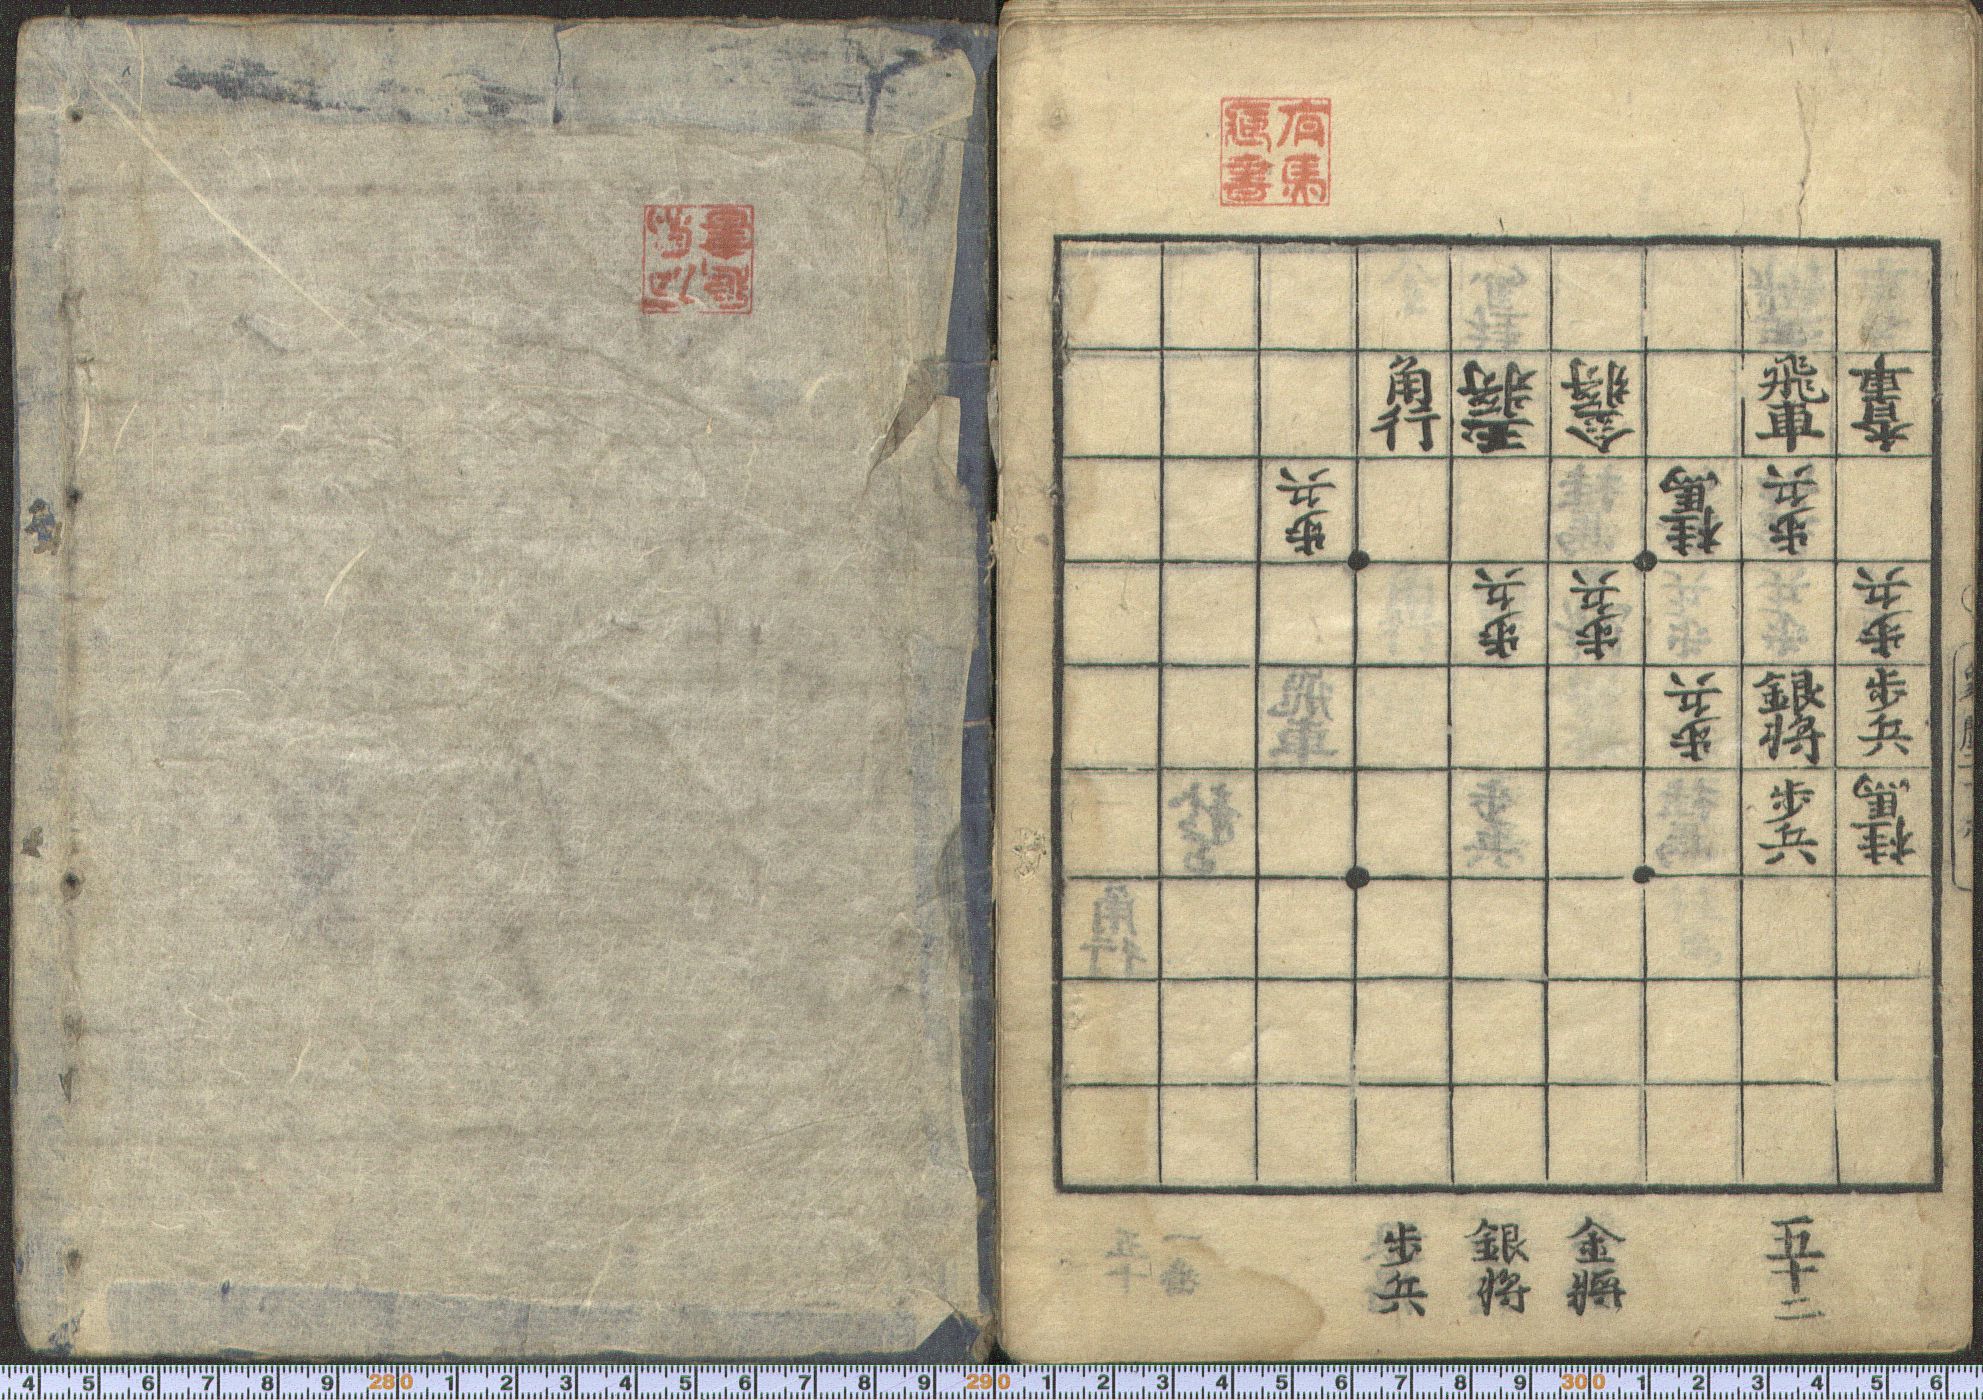 角行 玉将 金将 飛車 香車
歩兵 桂馬 歩兵
歩兵 歩兵 歩兵
歩兵 銀将 歩兵
歩兵 桂馬
五十二
金将
銀将
歩兵
4 5 6 7 8 9 280 1 2 3 4 5 6 7 8 9 290 1 2 3 4 5 6 7 8 9 300 1 2 3 4 5 6